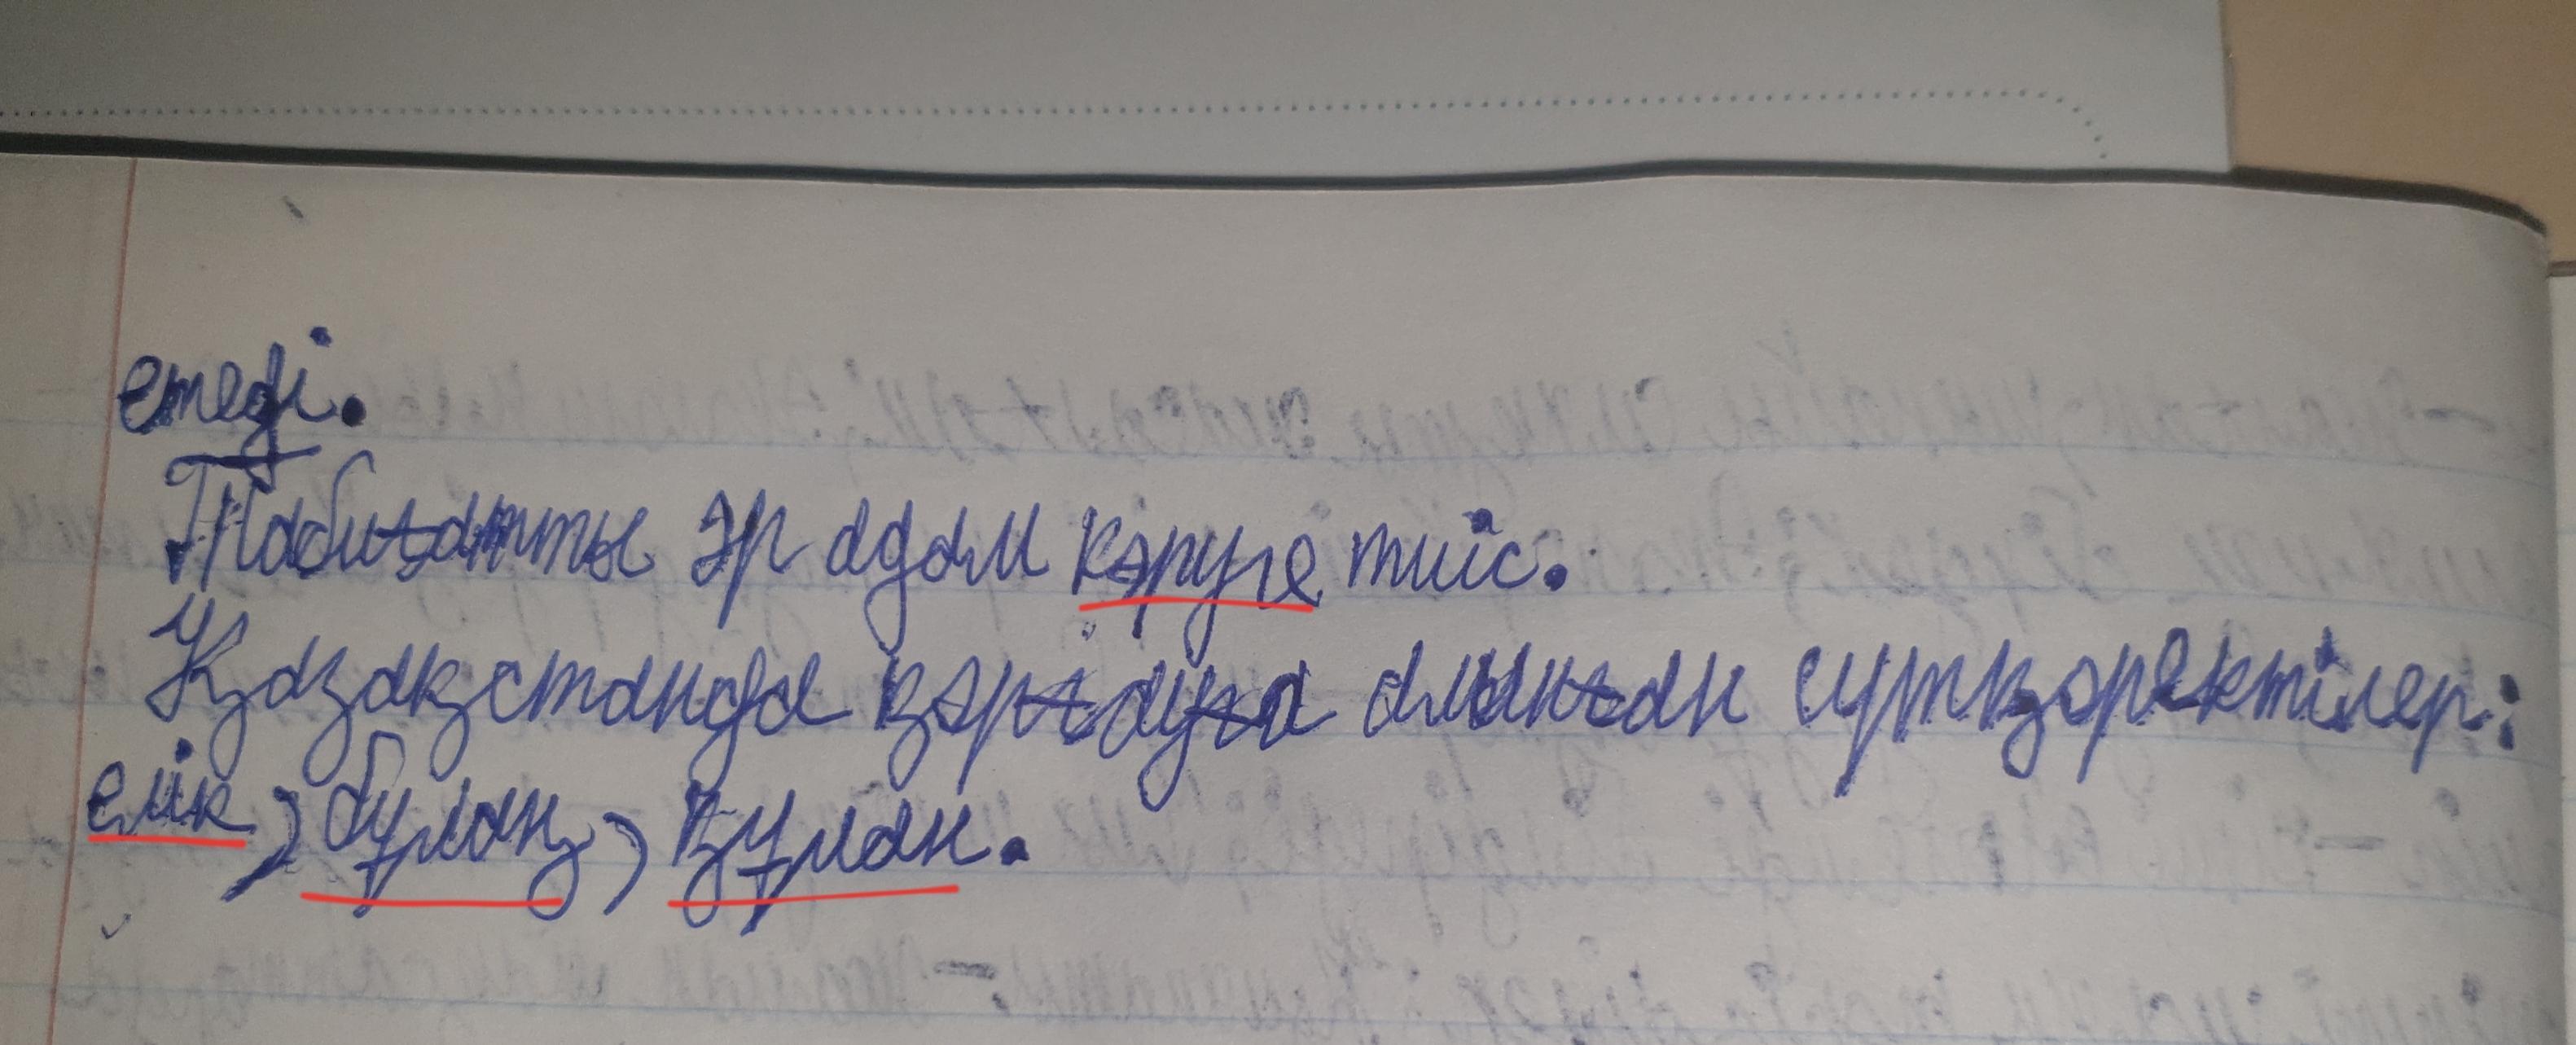 етеді.
Табиғатты әр адам көруге тиіс.
Қазақстанда қорғауға алынған сүтқоректілер:
елік, бұлаң, құлан.